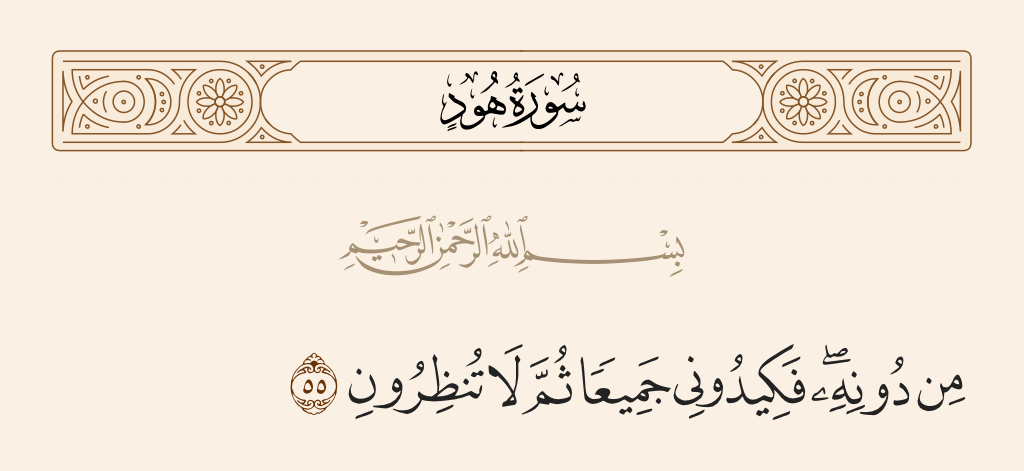 سُورَةُ هُودٍ
بِسْمِ ٱللَّهِ ٱلرَّحْمَٰنِ ٱلرَّحِيمِ
مِن دُونِهِۦۖ فَكِيدُونِى جَمِيعًا ثُمَّ لَا تُنظِرُونِ ٥٥